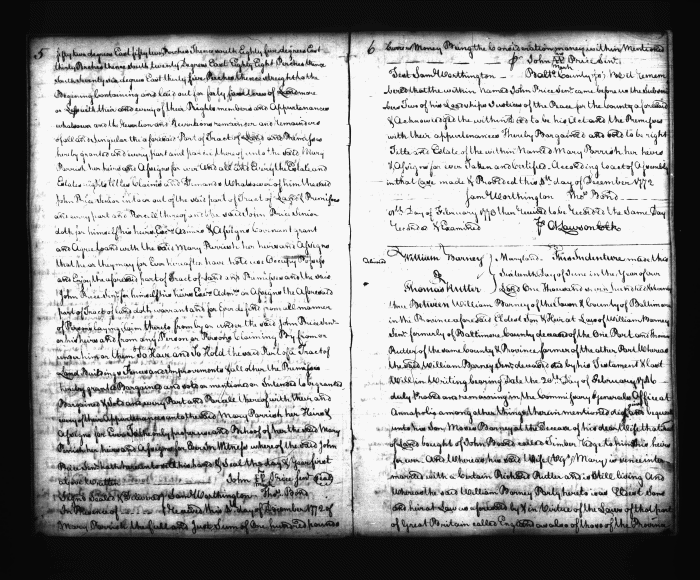 5
fifty two degrees East fifty two Perches Thence North Eighty five degrees East
thirty Perches thence South seventy Degrees East Eighty Eight Perches thence
South seventy six degrees East thirty five Perches thence straight to the
Beginning Containing and laid out for forty four Acres of Land more
or Less with their and every of their Rights members and Appurtenances
whatsoever and the Reversion and Reversions remainder and remainders
of all and Singular the aforesaid Part of Tract of Land and Premisses
hereby granted and every part and parcel thereof unto the said Mary
Parrish her heirs and Assigns for ever And all the Estate
Estates rights titles Claims and Demands Whatsoever of him the said
John Price Senior in to or out of the said part of Tract of Land & Premisses
and every part and Parcel thereof and the said John Price Senior
doth for himself his heirs Exrs Admrs & Assigns Covenant grant
and Agree to and with the said Mary Parrish her heirs and Assigns
that he they may for Ever hereafter have hold use Occupy Possess
and Enjoy the aforesaid part of Tract of Land and Premisses and the said
John Price Senr for himself his heirs Exrs Admrs or Assigns the Aforesaid
part of Tract of Land doth warrant and for Ever defend from all manner
of Persons Claiming Claim thereto by from or under the said John Price Senr
or his heirs and from any Person or Persons Claiming By from or
under him or them To Have and To Hold the said Part of a Tract of
Land Buildings Houses and Improvements & all other the Premisses
hereby granted Bargained and sold or mentioned or Intended to be granted
Bargained & Sold and every Part and Parcel thereof with their and
every of their Appurtenances to the said Mary Parrish her Heirs &
Assigns for Ever To the only proper use and Behoof of her the said Mary
Parrish her heirs and Assigns for Ever In Witness whereof the said John
Price Senr hath hereunto set his hand & Seal the day & year first
above Written John Price Senr (Seal)
Signed Sealed & Delivered Saml Worthington Thos Bond
In Presence of Received this 8th day of December 1772 of
Mary Parrish the full and Just Sum of One hundred pounds
6
Current Money Being the Consideration money within Mentioned
P John Price Senr
mark
Test Saml Worthington Balto County So Be it remem
bered that the within Named John Price Senr came before us the Subscri
bers Two of his Lordships Justices of the Peace for the County aforesaid
& Acknowledged the within Deed to be his Act and the Premisses
with their appurtenances thereby Bargained and sold to be right
Title and Estate of the within Named Mary Parrish her heirs
& Assigns for ever Taken and Certified According to act of Assembly
in that Case made & Provided this 8th day of December 1772
Saml Worthington Thos Bond
day of February 1773 then received to be recorded the Same Day
recorded & Examined P A Lawson Clk
William Barney
&
Thomas Rutter
Maryland. This Indenture made this
Sixteenth Day of June in the Year of our
Lord One Thousand Seven hundred & seventy
three Between William Barney of the Town & County of Baltimore
in the Province aforesaid Eldest Son & Heir at Law of William Barney
Senr formerly of Baltimore County deceased of the One Part and Thomas
Rutter of the same County & Province farmer of the other Part Whereas
the said William Barney Senr deceased did by his Testament & last
Will in Writing bearing Date the 20th Day of February 1746
duly proved and remaining in the Commissary Generals Office at
Annapolis among other things therein mentioned did give and bequeath
unto his Son Moses Barney at the decease of his dear Wife that tract
of Land bought of John Boone called Timber Ridge to him & his heirs
for ever And Whereas his said Wife (Viz) Mary is since inter
married with a Certain Richard Rutter and is Still living And
Whereas the said William Barney Party hereto was Eldest Son
and heir at Law as aforesaid by & in Virtue of the Laws of that part
of Great Britain called England as also of those of the Province